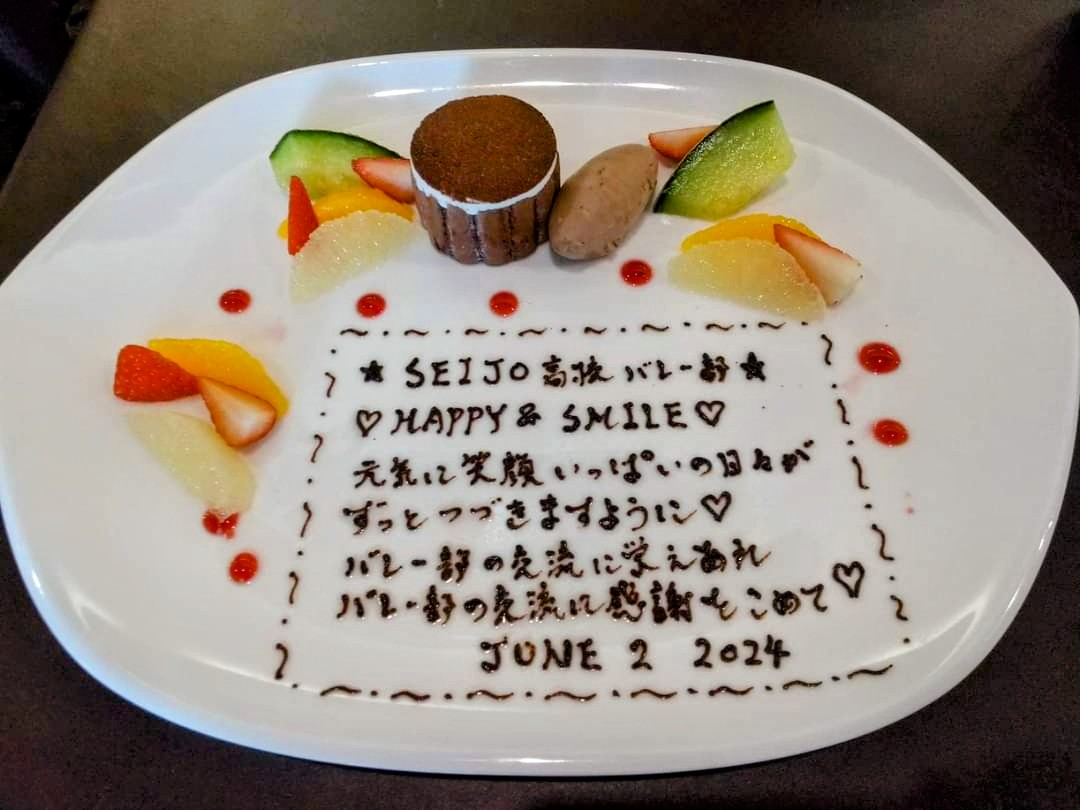 ★ SEIJO 高校 バレー部 ★
♡ HAPPY & SMILE ♡
元気に笑顔いっぱいの日々が
ずっとつづきますように♡
バレー部の交流に栄えあれ
バレー部の交流に感謝をこめて♡
JUNE 2 2024